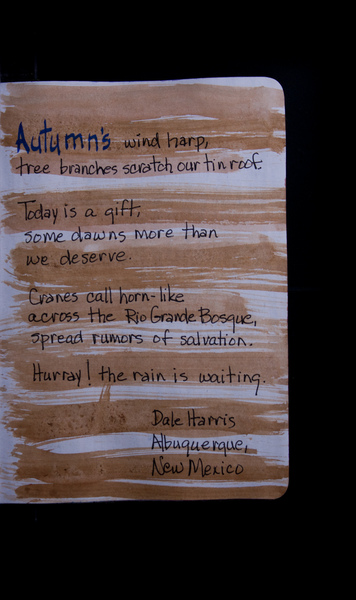 Autumn's wind harp,
tree branches scratch our tin roof.
Today is a gift,
some dawns more than
we deserve.
Cranes call horn-like
across the Rio Grande Bosque,
spread rumors of salvation.
Hurray! the rain is waiting.
Dale Harris
Albuquerque,
New Mexico